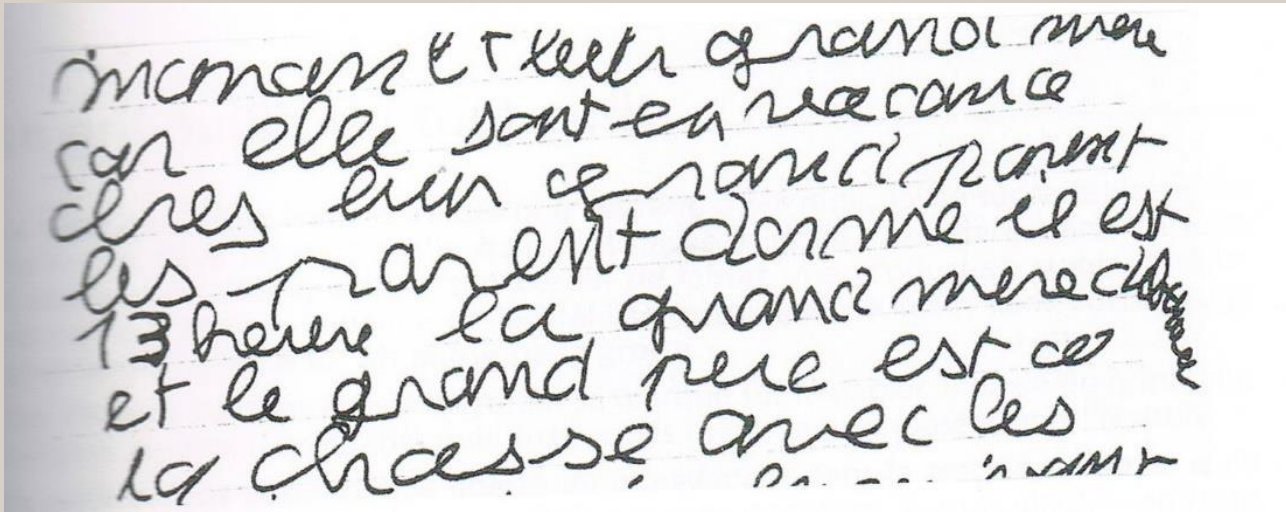 mamant et leur grand mere
car elle sont en vacance
ches leur grand parent
les parent dorme il est
13 heure la grand mere
et le grand pere est a
la chasse avec les